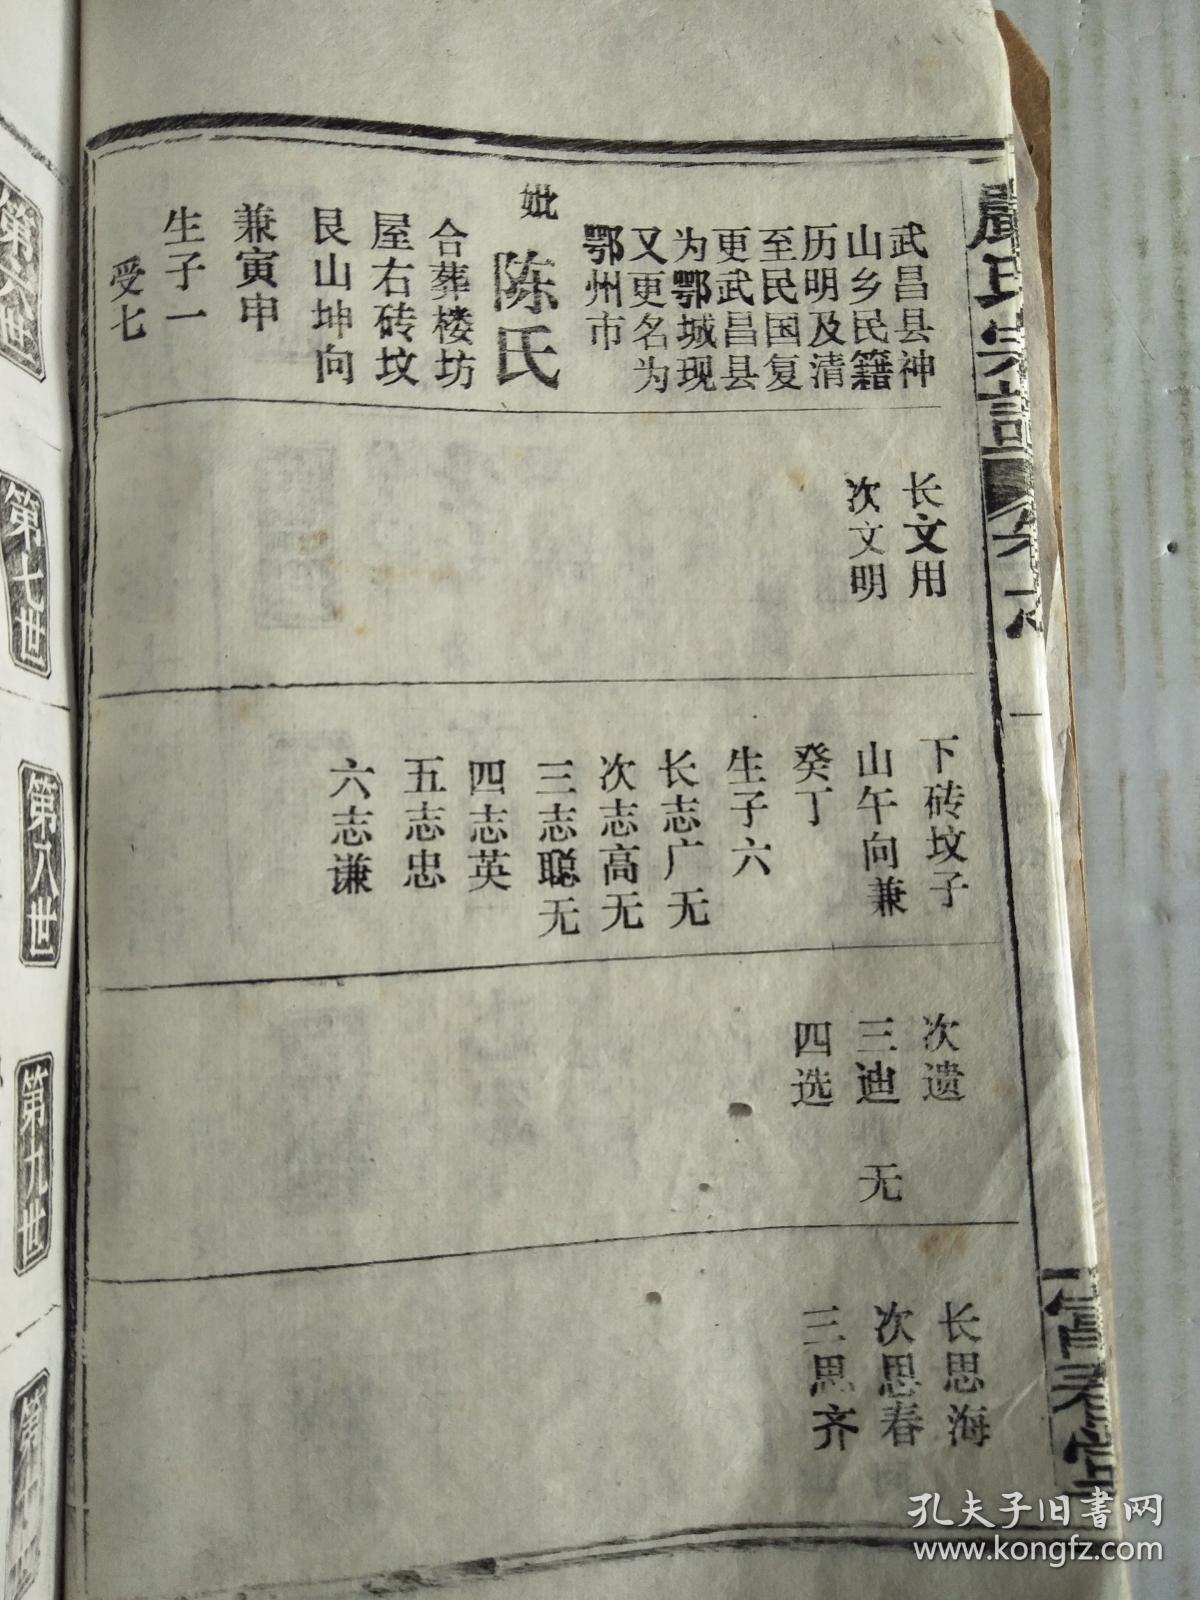 嚴氏宗譜
卷六
一
富春堂
武昌县神
山乡民籍
历明及清
至民国复
更武昌县
为鄂城现
又更名为
鄂州市
妣
陈氏
合葬楼坊
屋右砖坟
艮山坤向
兼寅申
生子一
受七
长文用
次文明
下砖坟子
山午向兼
癸丁
生子六
长志广无
次志高无
三志聪无
四志英
五志忠
六志谦
次遗
三迪 无
四选
长思海
次思春
三思齐
第六世
第七世
第八世
第九世
第十世
孔夫子旧書网
www.kongfz.com